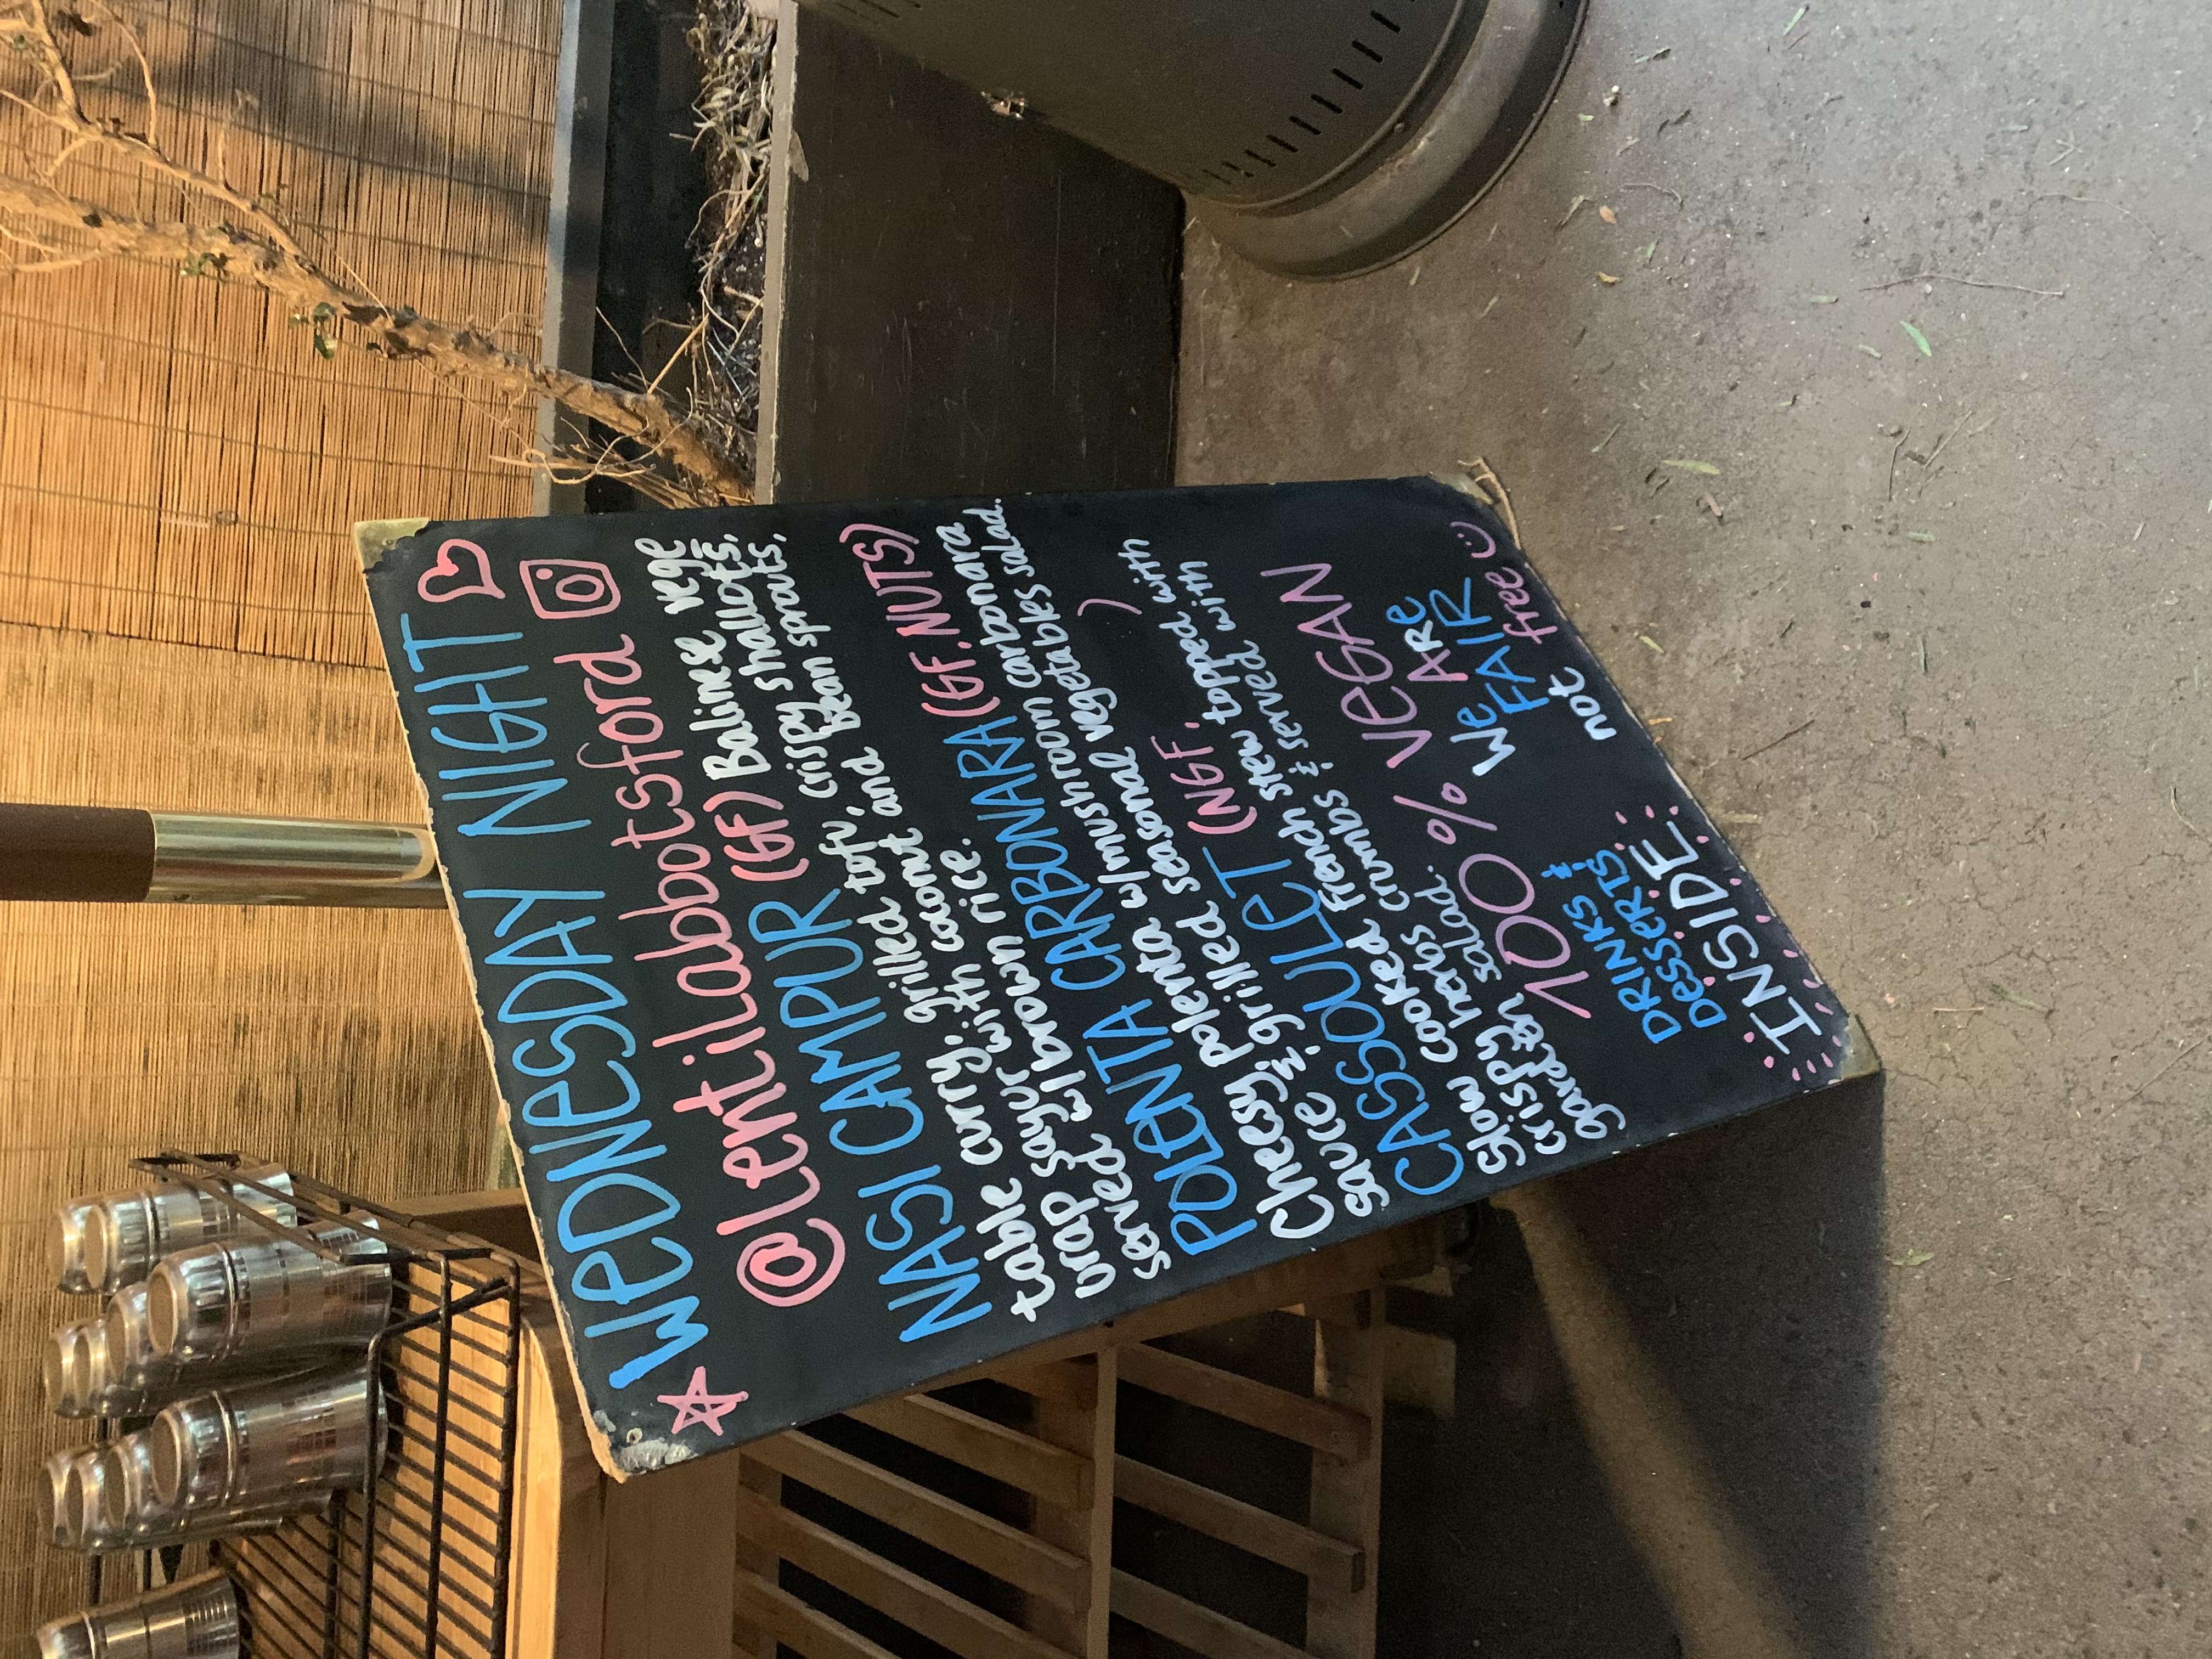 WEDNESDAY NIGHT
@lentilabbotsford
NASI CAMPUR (GF) Balinese vege
table curry, grilled tofu, crispy shallots,
urap sayur with coconut and bean sprouts,
served w/brown rice.
POLENTA CARBONARA (GF, NUTS)
Cheesy polenta w/mushroom carbonara
sauce & grilled seasonal vegetables salad.
CASSOULET (NGF, )
Slow cooked French stew topped with
crispy herbs crumbs & served with
garden salad.
100% VEGAN
DRINKS &
DESSERTS
INSIDE
We ARe
FAIR
not free